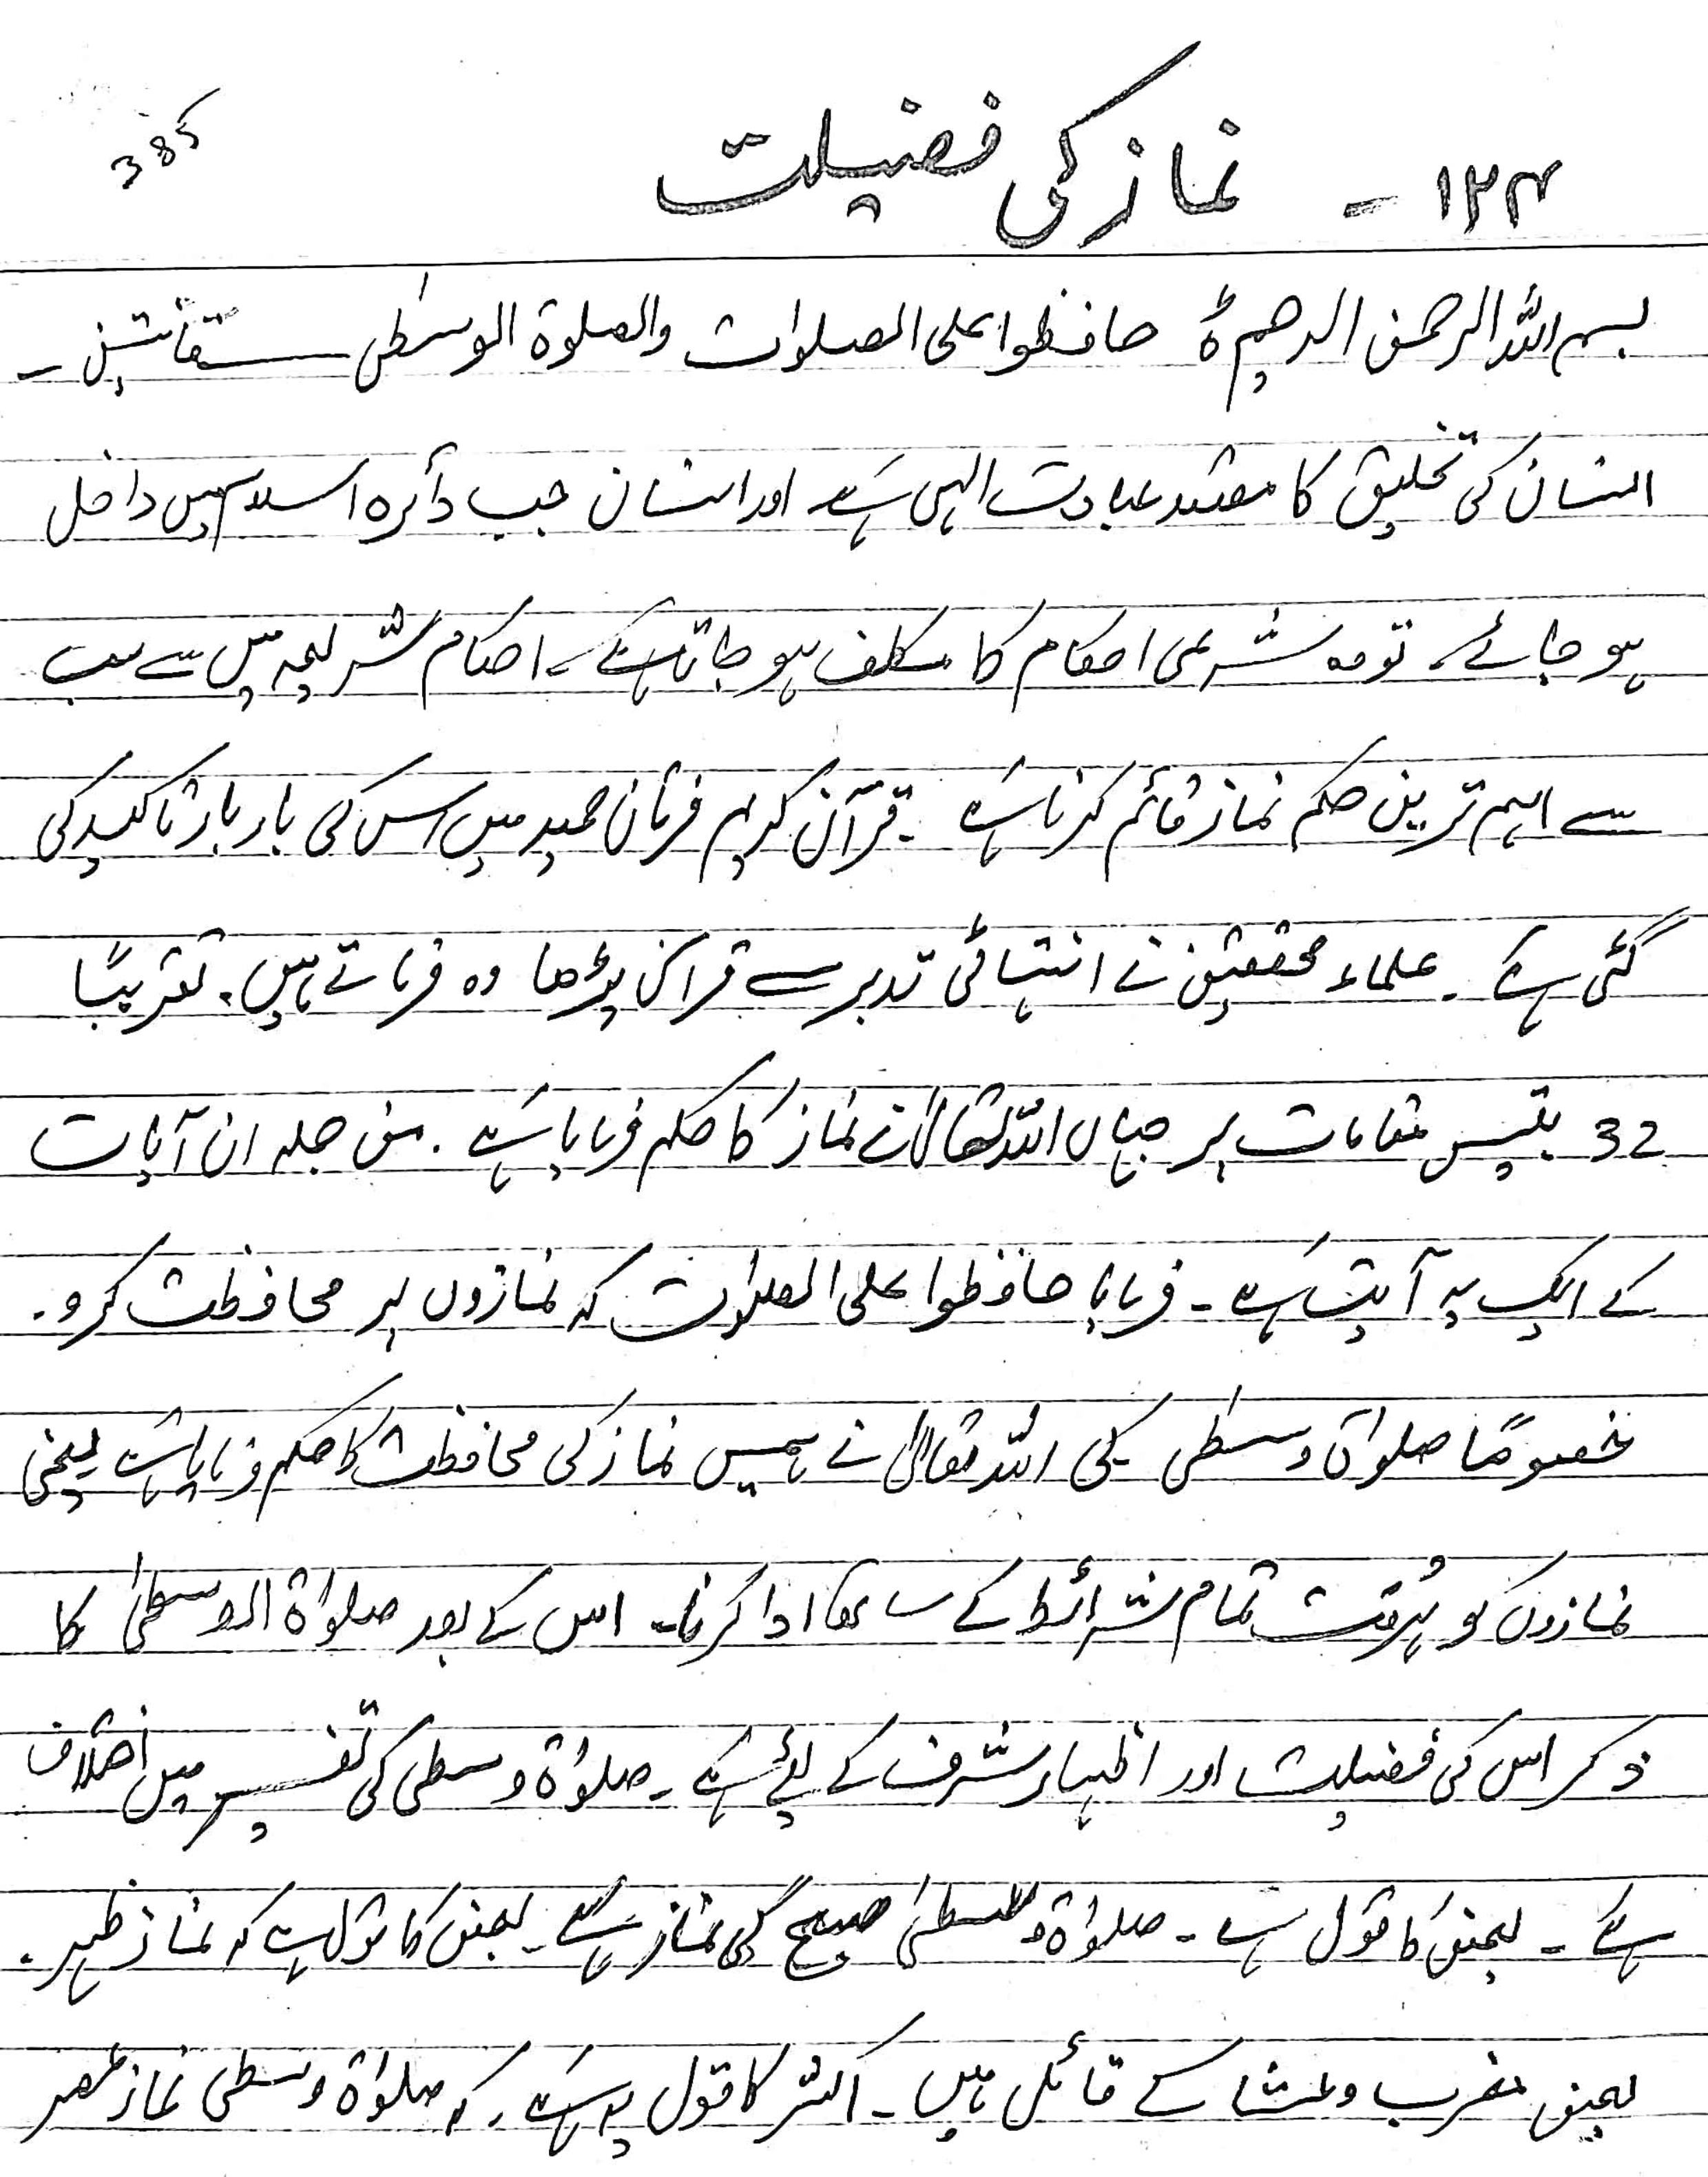 385
۱۲۴ - نماز کی فضیلت
بسم اللہ الرحمن الرحیم ہ حافظوا علی الصلوات والصلوۃ الوسطیٰ ... قانتین ۔
انسان کی تخلیق کا مقصد عبادت الہی ہے اور انسان جب دائرہ اسلام میں داخل
ہو جائے تو وہ شرعی احکام کا مکلف ہو جاتا ہے ۔ احکام شرعیہ میں سے سب
سے اہم ترین حکم نماز قائم کرنا ہے ۔ قرآن کریم فرقان حمید میں اس کی بار بار تاکید کی
گئی ہے ۔ علماء محققین نے انتہائی تدبر سے قرآن پڑھا وہ فرماتے ہیں ۔ تقریباً
32 بتیس مقامات پر جہاں اللہ تعالیٰ نے نماز کا حکم فرمایا ہے ۔ من جملہ ان آیات
کے ایک یہ آیت ہے ۔ فرمایا حافظوا علی الصلوٰت کہ نمازوں پر محافظت کرو ۔
خصوصًا صلوٰۃ وسطی کی اللہ تعالیٰ نے ہمیں نماز کی محافظت کا حکم فرمایا ہے یعنی
نمازوں کو بروقت تمام شرائط کے ساتھ ادا کرنا ۔ اس کے بعد صلوٰۃ الوسطیٰ کا
ذکر اس کی فضیلت اور اظہار شرف کے لئے ہے ۔ صلوٰۃ وسطی کی تفسیر میں اختلاف
ہے ۔ بعض کا قول ہے ۔ صلوٰۃ وسطیٰ صبح کی نماز ہے ۔ بعض کا قول ہے کہ نماز ظہر ۔
بعض مغرب و عشا کے قائل ہیں ۔ اکثر کا قول یہ ہے ۔ کہ صلوٰۃ وسطی نماز عصر